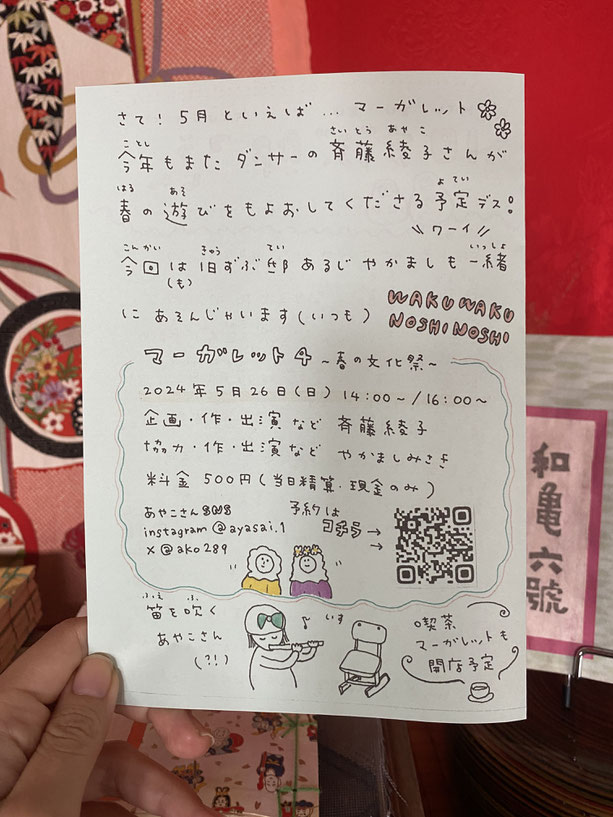 さて！5月といえば…マーガレット
今年もまたダンサーの斉藤綾子さんが
ことし さいとう あやこ
春の遊びをもよおしてくださる予定デス！
はる あそ よてい
\\ワーイ//
今回は旧ずぶ邸あるじやかましも一緒
こんかい きゅう てい いっしょ
(も)
にあそんじゃいます(いつも)
WAKUWAKU
NOSHINOSHI
マーガレット4 ~春の文化祭~
2024年5月26日(日) 14:00~/16:00~
企画・作・出演など 斉藤綾子
協力・作・出演など やかましみさき
料金 500円(当日精算・現金のみ)
あやこさんSNS
instagram @ayasai.1
X @ako289
予約は
コチラ→
→
笛を吹く
ふえ ふ
あやこさん
(?!)
♪
いす
喫茶
マーガレットも
開店予定
和亀六號